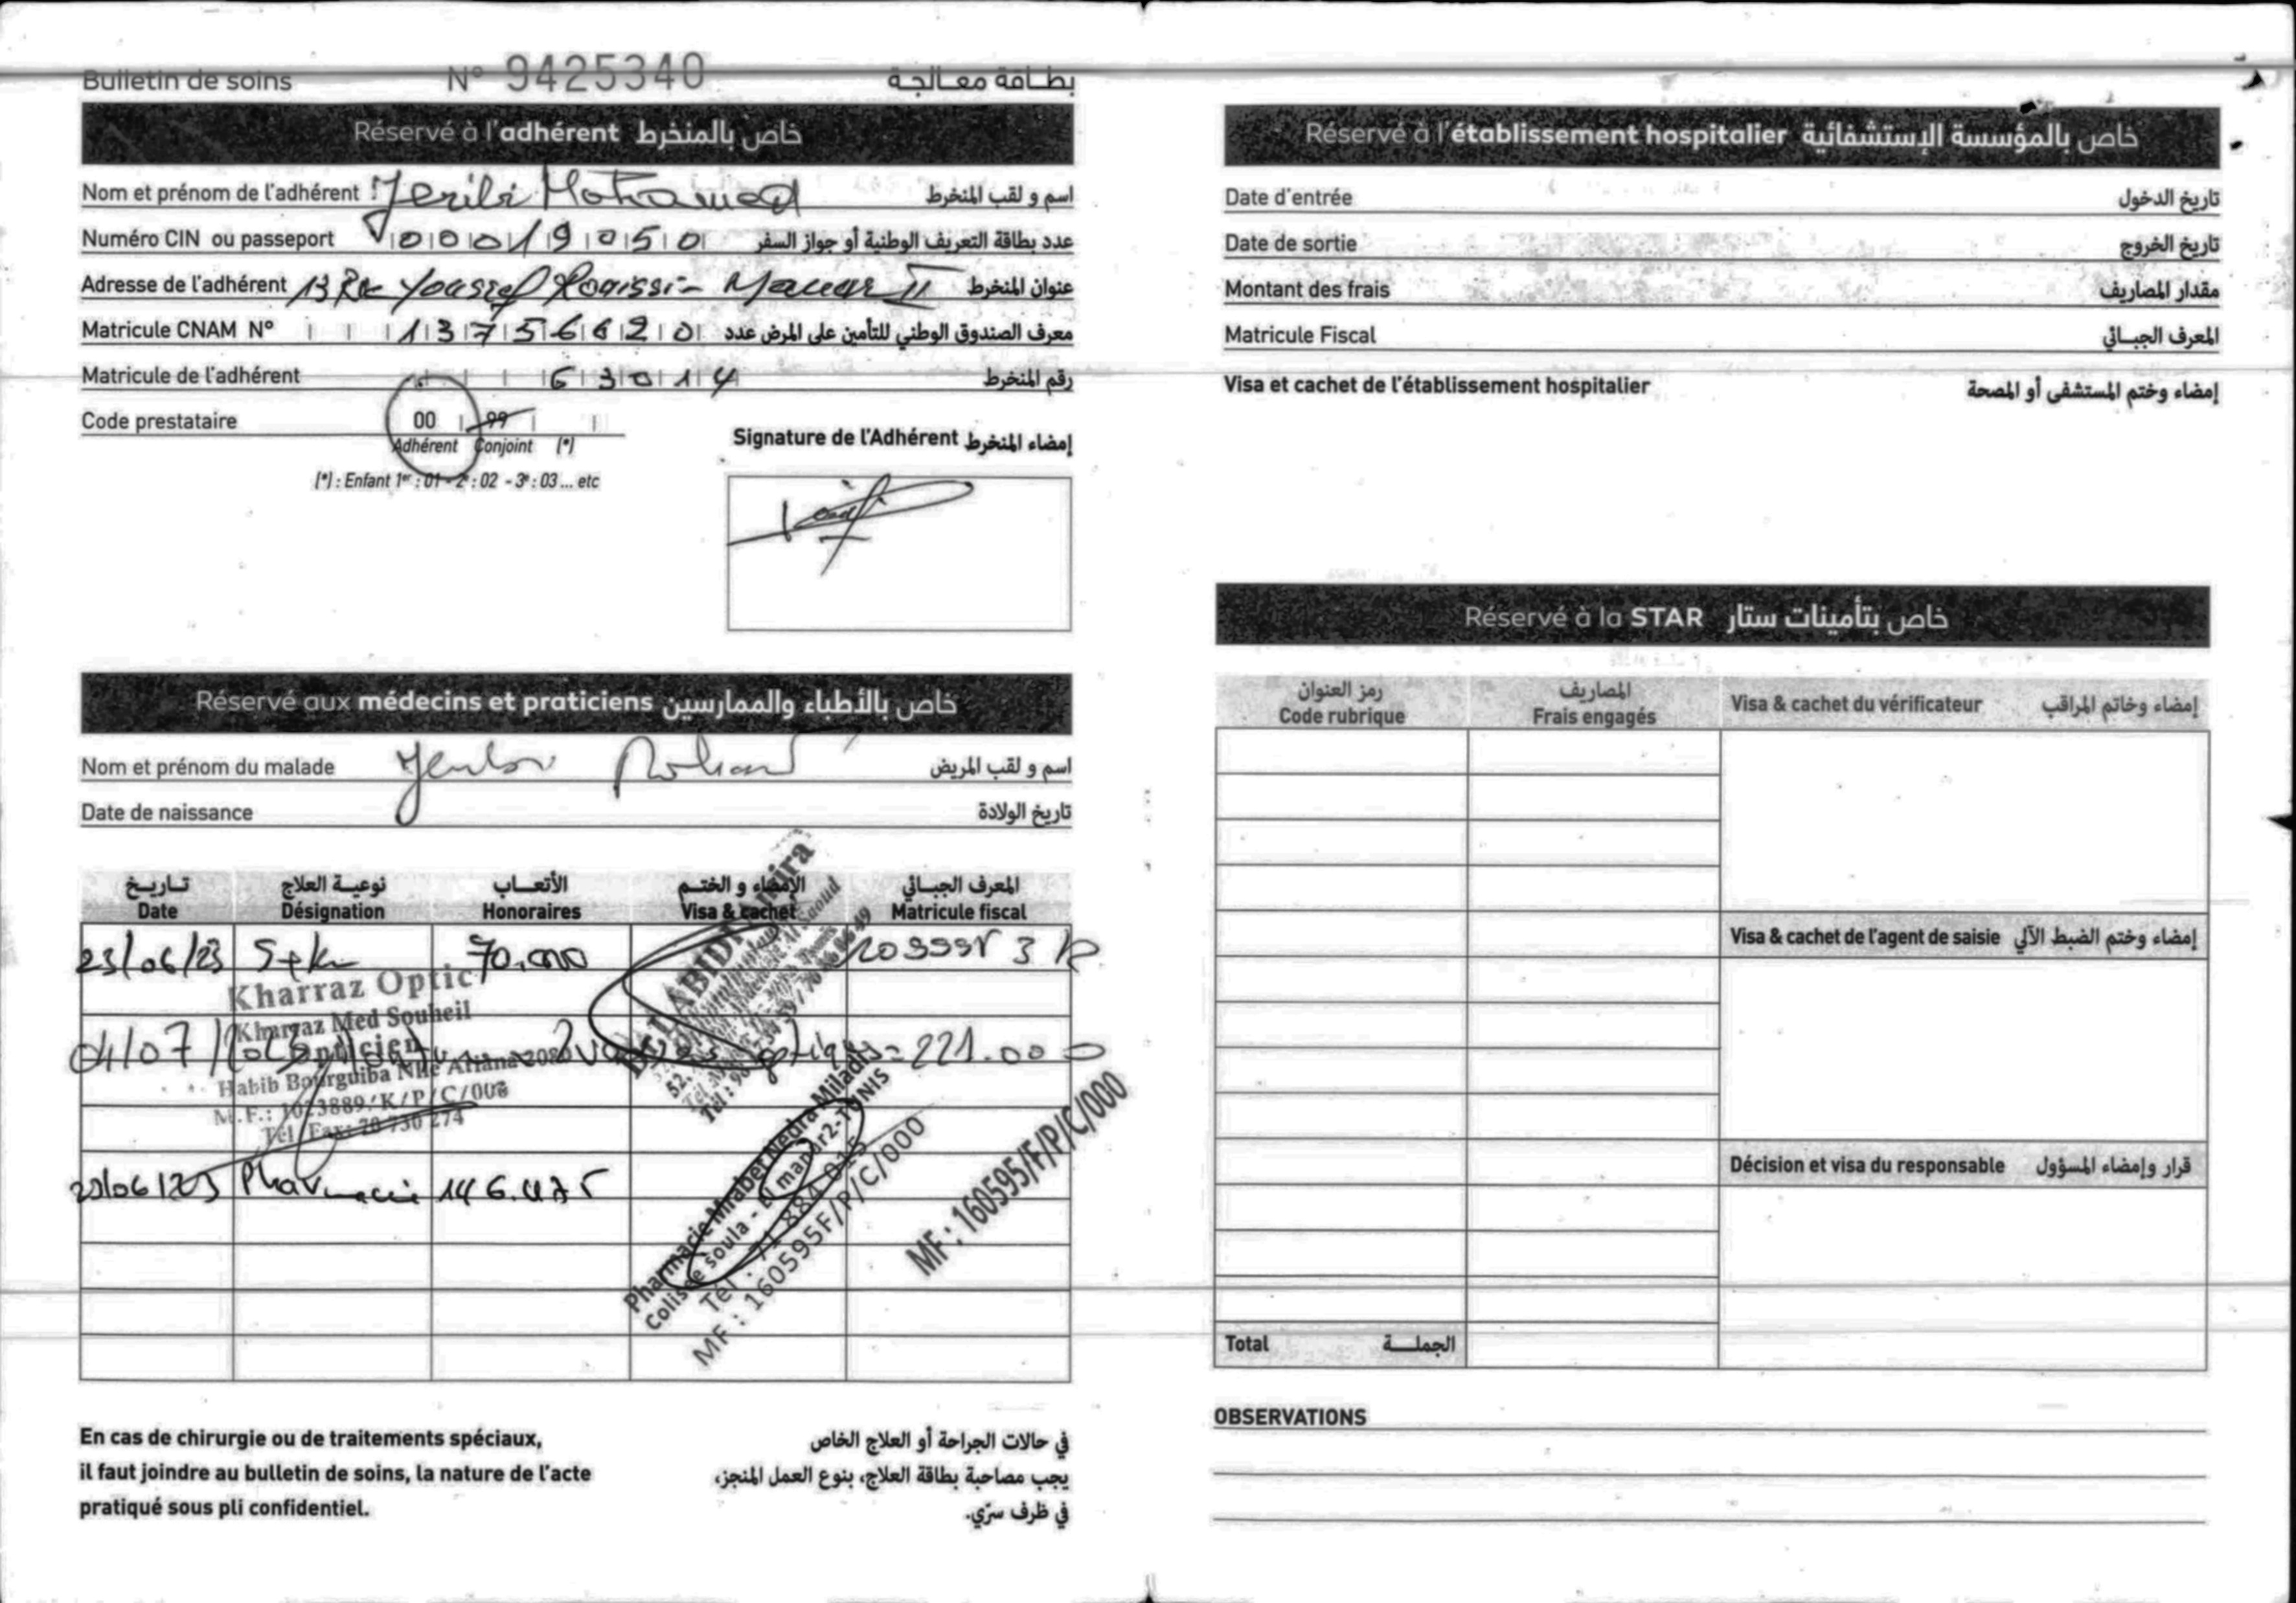 Bulletin de soins N° 9425340 بطاقة معالجة
Réservé à l'adhérent خاص بالمنخرط
Nom et prénom de l'adhérent : Jeribi Mohamed اسم و لقب المنخرط
Numéro CIN ou passeport 00019050 عدد بطاقة التعريف الوطنية أو جواز السفر
Adresse de l'adhérent 13 Rue Youssef Rouissi - Manar II عنوان المنخرط
Matricule CNAM N° 13756620 معرف الصندوق الوطني للتأمين على المرض عدد
Matricule de l'adhérent 63014 رقم المنخرط
Code prestataire 00 99
Adhérent Conjoint (*)
(*) : Enfant 1er : 01 - 2e : 02 - 3e : 03 ... etc
Signature de l'Adhérent إمضاء المنخرط
Réservé aux médecins et praticiens خاص بالأطباء والممارسين
Nom et prénom du malade Jeribi Mohamed اسم و لقب المريض
Date de naissance تاريخ الولادة
تاريخ نوعية العلاج الأتعاب الإمضاء و الختم المعرف الجبائي
Date Désignation Honoraires Visa & cachet Matricule fiscal
23/06/23 70.000
LABIDI Amira
Kharraz Optic
Kharraz Med Souheil
Opticien
Habib Bourguiba Nlle Ariana 2080
M.F.: 1023889/K/P/C/000
Tél. Fax: 70 730 274
04/07 optique = 221.000
Pharmacie 146.475
Pharmacie Mrabet Nedra Miladi
Colisée soula - El manar2-TUNIS
Tél : 71 884 015
MF : 160595F/P/C/000
MF : 160595/F/P/C/000
En cas de chirurgie ou de traitements spéciaux,
il faut joindre au bulletin de soins, la nature de l'acte
pratiqué sous pli confidentiel.
في حالات الجراحة أو العلاج الخاص
يجب مصاحبة بطاقة العلاج، بنوع العمل المنجز،
في ظرف سرّي.
Réservé à l'établissement hospitalier خاص بالمؤسسة الإستشفائية
Date d'entrée تاريخ الدخول
Date de sortie تاريخ الخروج
Montant des frais مقدار المصاريف
Matricule Fiscal المعرف الجبائي
Visa et cachet de l'établissement hospitalier إمضاء وختم المستشفى أو المصحة
Réservé à la STAR خاص بتأمينات ستار
رمز العنوان المصاريف
Code rubrique Frais engagés Visa & cachet du vérificateur إمضاء وخاتم المراقب
Visa & cachet de l'agent de saisie إمضاء وختم الضبط الآلي
Décision et visa du responsable قرار وإمضاء المسؤول
Total الجملة
OBSERVATIONS